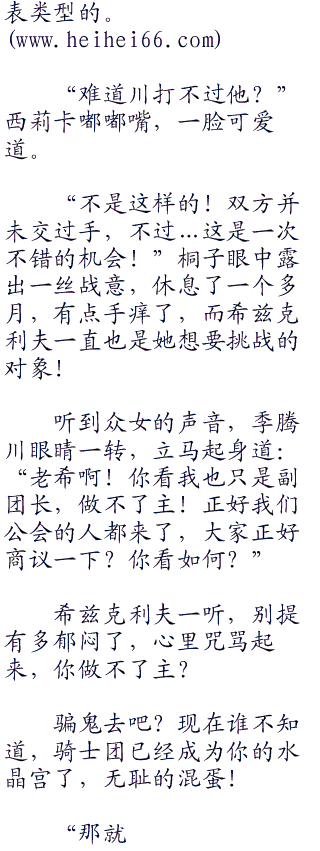 表类型的。
(www.heihei66.com)
“难道川打不过他？”
西莉卡嘟嘟嘴，一脸可爱
道。
“不是这样的！双方并
未交过手，不过…这是一次
不错的机会！”桐子眼中露
出一丝战意，休息了一个多
月，有点手痒了，而希兹克
利夫一直也是她想要挑战的
对象！
听到众女的声音，季腾
川眼睛一转，立马起身道：
“老希啊！你看我也只是副
团长，做不了主！正好我们
公会的人都来了，大家正好
商议一下？你看如何？”
希兹克利夫一听，别提
有多郁闷了，心里咒骂起
来，你做不了主？
骗鬼去吧？现在谁不知
道，骑士团已经成为你的水
晶宫了，无耻的混蛋！
“那就